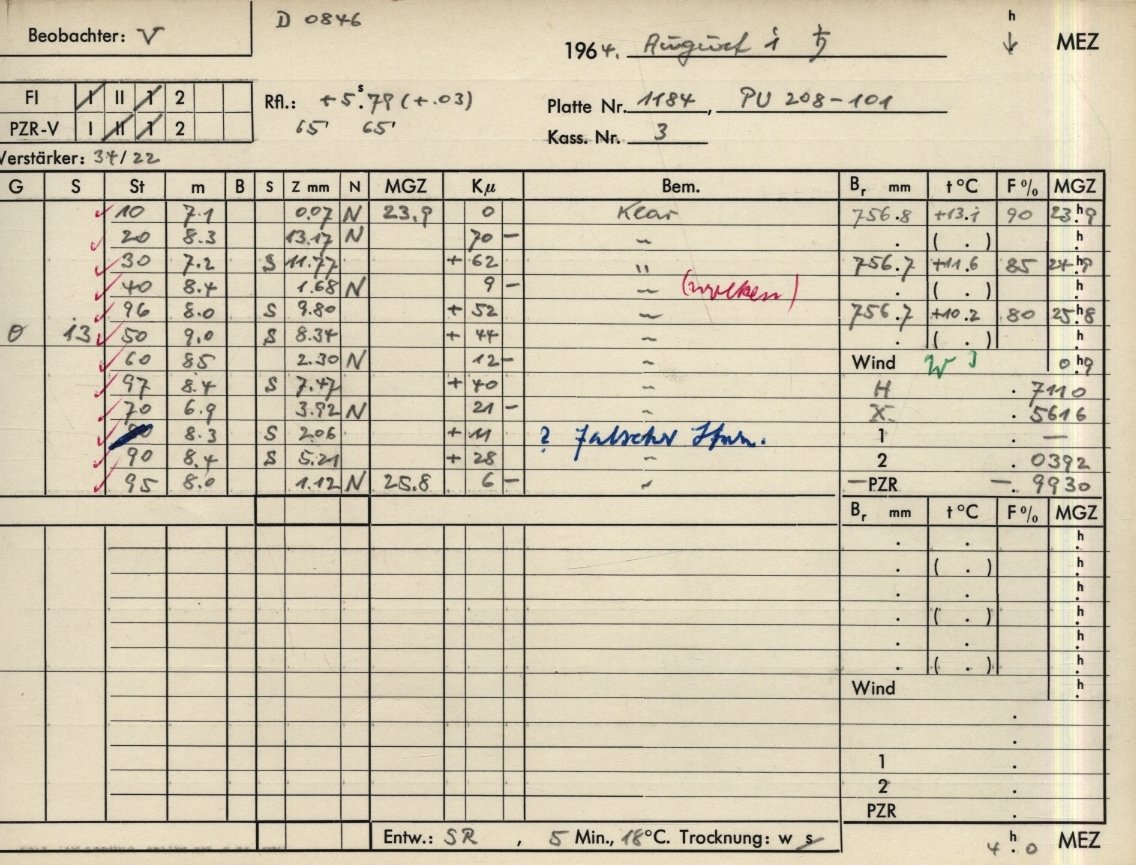 D 0846
Beobachter: V
1964. August 1 ♄ h ↓ MEZ
FI I II 1 2
PZR-V I II 1 2
Rfl.: +5.ˢ79 (+.03)
65' 65'
Platte Nr. 1184, PU 208-101
Kass. Nr. 3
Verstärker: 34/22
G S St m B S Z mm N MGZ Kμ Bem. Br mm t°C F% MGZ
✓ 10 7.1 0.07 N 23.9 0 Klar 756.8 +13.1 90 23.h9
✓ 20 8.3 13.17 N 70 – ~ . ( . ) .h
✓ 30 7.2 S 11.77 + 62 " 756.7 +11.6 85 24.h9
✓ 40 8.4 1.68 N 9 – ~ (wolken) . ( . ) .h
✓ 96 8.0 S 9.80 + 52 ~ 756.7 +10.2 80 25.h8
0 13 ✓ 50 9.0 S 8.34 + 44 ~ . ( . ) .h
✓ 60 85 2.30 N 12 – ~ Wind W 3 0.h9
✓ 97 8.4 S 7.47 + 40 ~ H . 7110
✓ 70 6.9 3.92 N 21 – ~ X . 5616
✓ 80 8.3 S 2.06 + 11 ? Falscher Stern. 1 . —
✓ 90 8.4 S 5.21 + 28 ~ 2 . 0392
✓ 95 8.0 1.12 N 25.8 6 – ~ —PZR —. 9930
Br mm t°C F% MGZ
. . .h
. ( . ) .h
. . .h
. ( . ) .h
. . .h
. ( . ) .h
Wind .h
.
.
1 .
2 .
PZR .
Entw.: SR , 5 Min., 18°C. Trocknung: w s
4.h0 MEZ